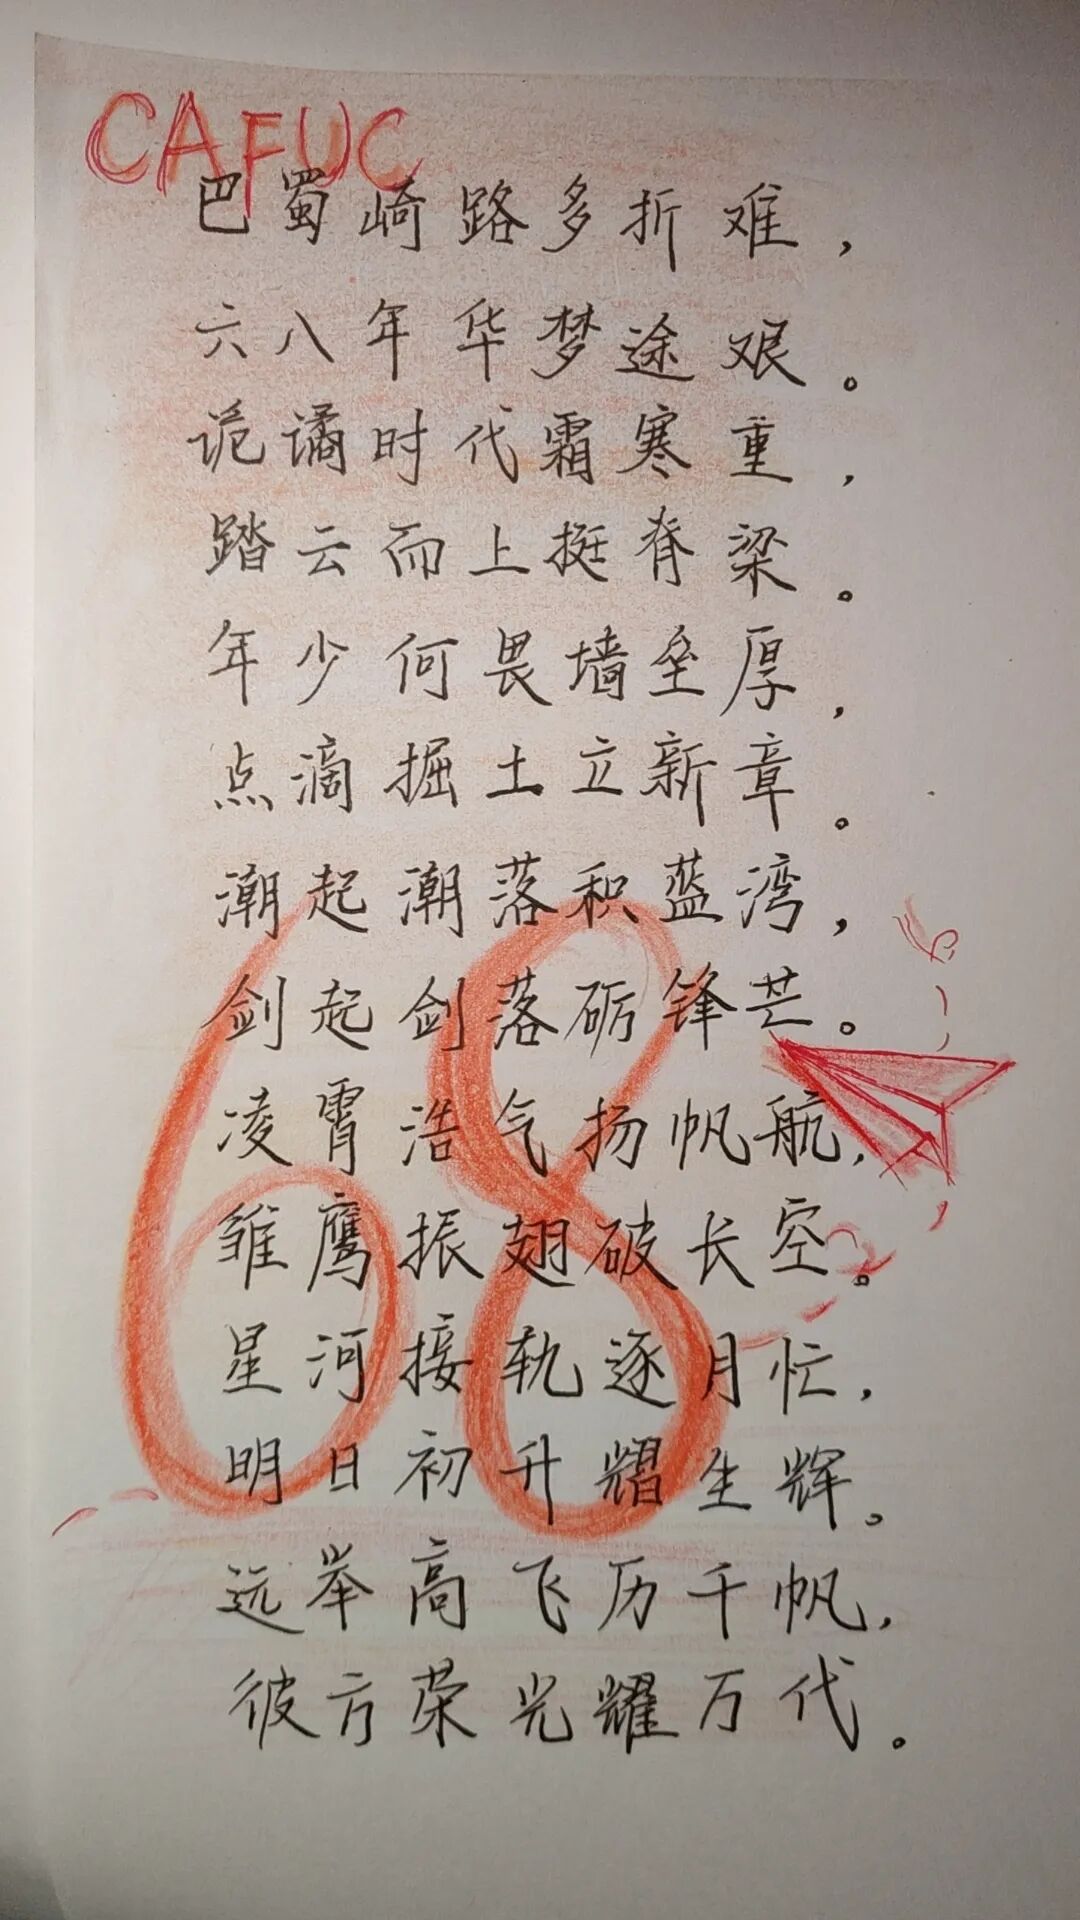 CAFUC
巴蜀崎路多折难，
六八年华梦途艰。
诡谲时代霜寒重，
踏云而上挺脊梁。
年少何畏墙垒厚，
点滴掘土立新章。
潮起潮落积蓝湾，
剑起剑落砺锋芒。
凌霄浩气扬帆航，
雏鹰振翅破长空。
星河接轨逐月忙，
明日初升耀生辉。
远举高飞历千帆，
彼方荣光耀万代。
68